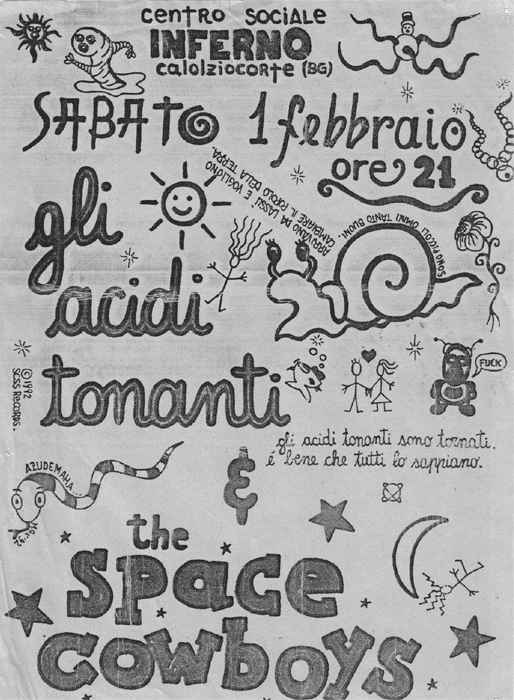 centro sociale
INFERNO
calolziocorte (BG)
SABATO 1 febbraio
ore 21
ARRIVANO DA LASSÙ E VOGLIONO
CAMBIARE IL POPOLO DELLA TERRA.
SONO PICCOLI OMINI TANTO BUONI.
gli
acidi
tonanti
©1992
SCSSS RECORDS.
FUCK
gli acidi tonanti sono tornati.
é bene che tutti lo sappiano.
AZUDEMAHA...
&
the
space
cowboys